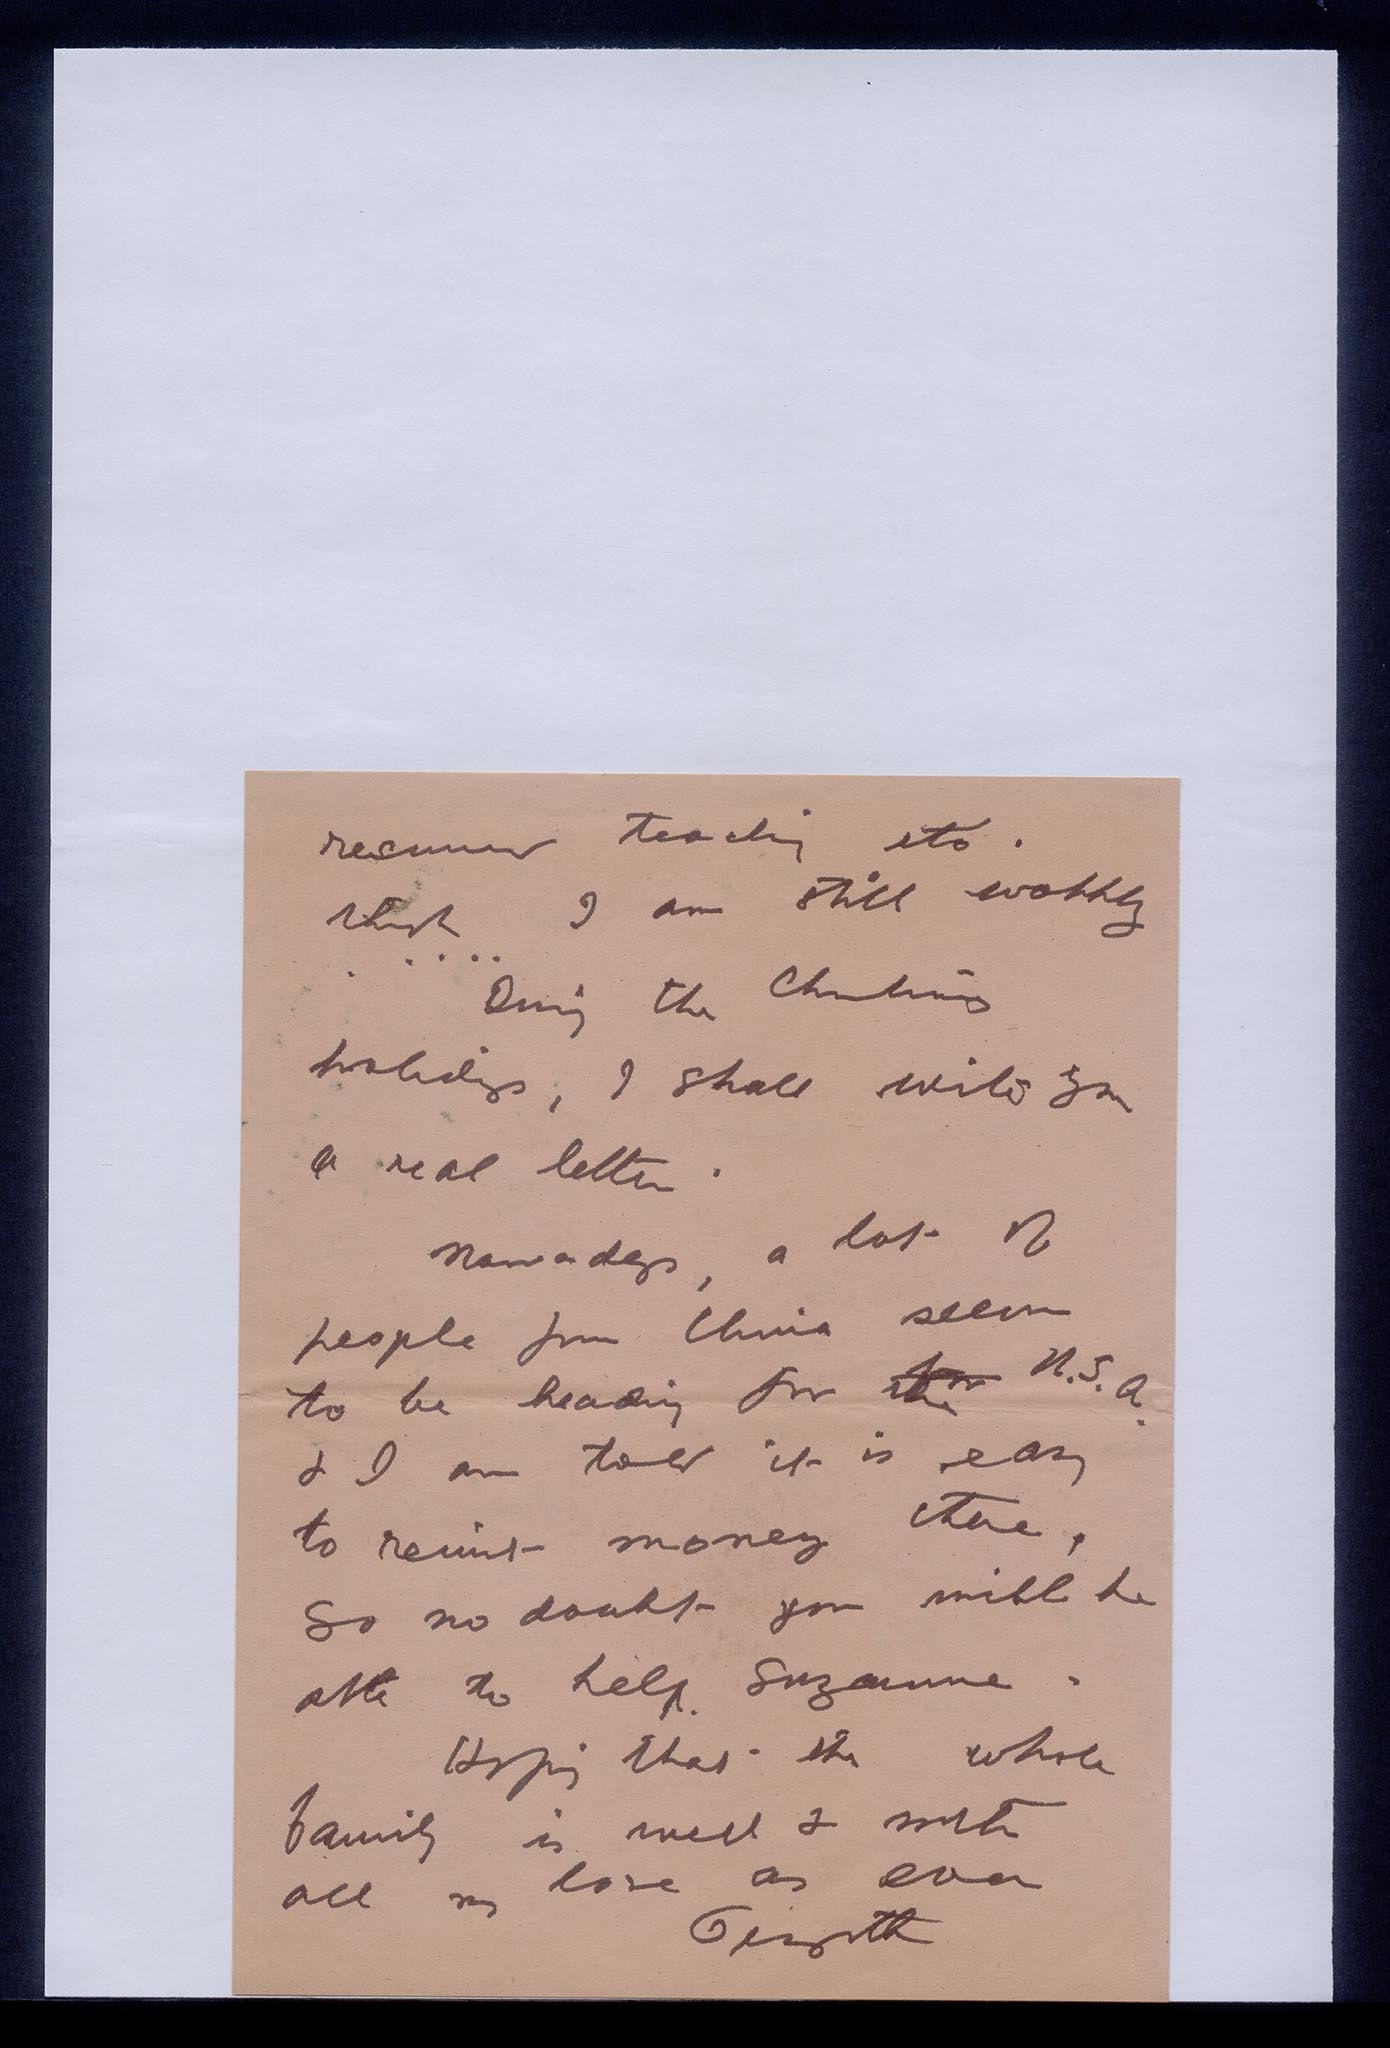 resumed teaching etc.
I am still wobbly
. . . . .
During the Christmas
holidays, I shall write you
a real letter.
Nowadays, a lot of
people from China seem
to be heading for the U.S.A.
& I am told it is easy
to remit money there,
So no doubt you will be
able to help Suzanne.
Hoping that the whole
family is well & with
all my love as ever